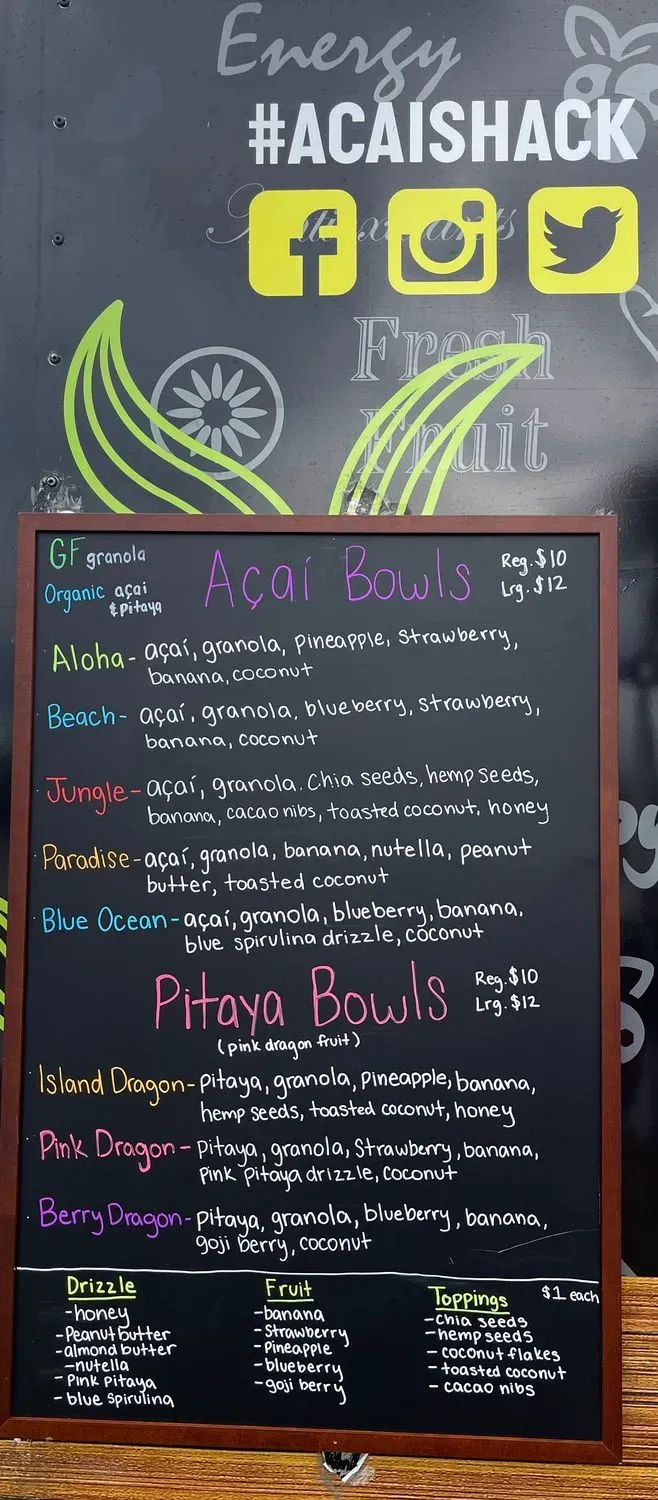 Energy
#ACAISHACK
Fresh
Fruit
GF granola
Organic açai
& Pitaya
Açaí Bowls
Reg. $10
Lrg. $12
Aloha - açaí, granola, pineapple, strawberry,
banana, coconut
Beach - açaí, granola, blueberry, strawberry,
banana, coconut
Jungle - açaí, granola, Chia seeds, hemp seeds,
banana, cacao nibs, toasted coconut, honey
Paradise - açaí, granola, banana, nutella, peanut
butter, toasted coconut
Blue Ocean - açaí, granola, blueberry, banana,
blue spirulina drizzle, coconut
Pitaya Bowls
Reg. $10
Lrg. $12
(pink dragon fruit)
Island Dragon - pitaya, granola, pineapple, banana,
hemp seeds, toasted coconut, honey
Pink Dragon - Pitaya, granola, Strawberry, banana,
Pink Pitaya drizzle, coconut
Berry Dragon - pitaya, granola, blueberry, banana,
goji berry, coconut
Drizzle
- honey
- Peanut butter
- almond butter
- nutella
- Pink Pitaya
- blue spirulina
Fruit
- banana
- Strawberry
- Pineapple
- blueberry
- goji berry
Toppings
$1 each
- Chia seeds
- hemp seeds
- coconut flakes
- toasted coconut
- cacao nibs